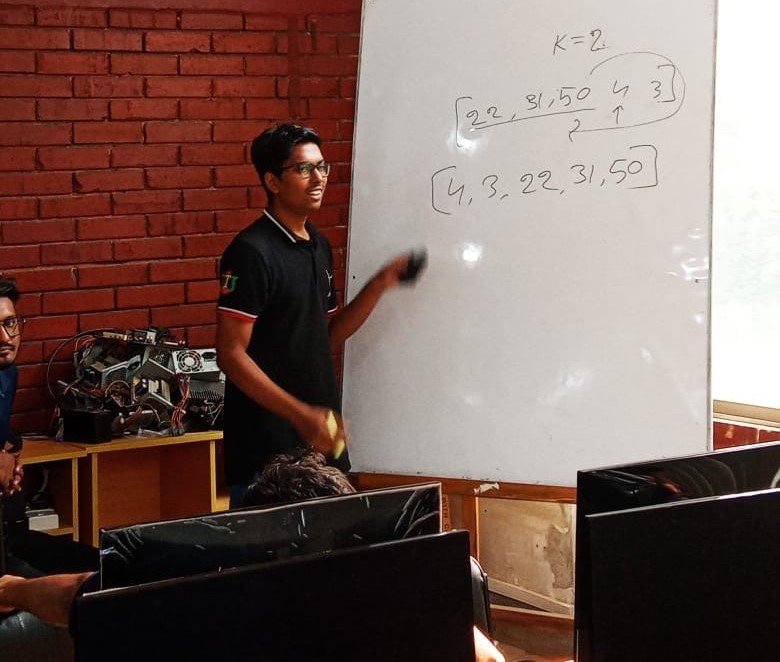 K=2
[22, 31, 50 4 3]
2
[4, 3, 22, 31, 50]